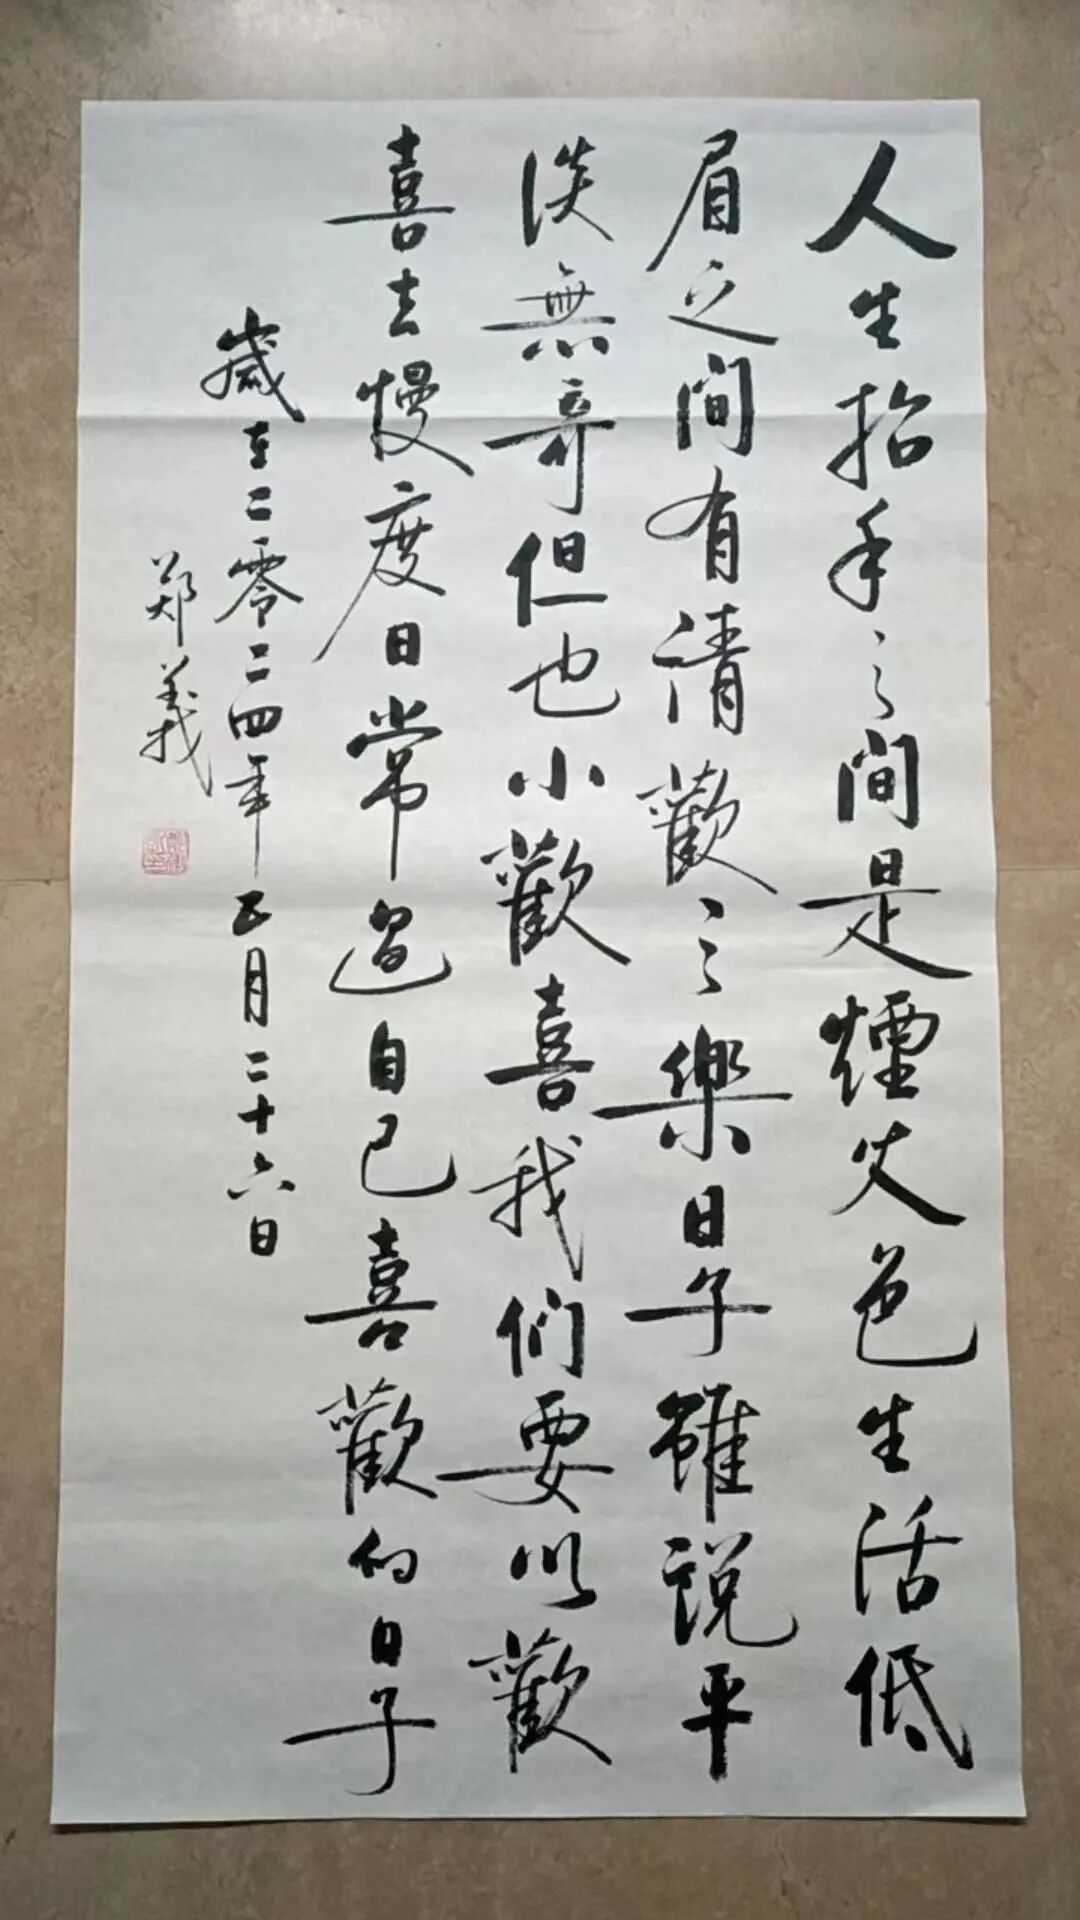 人生抬手之间是煙火色生活低
眉之间有清歡之樂日子雖説平
淡無奇但也小歡喜我们要以歡
喜去慢度日常過自己喜歡的日子
歲在二零二四年正月二十六日
郑義